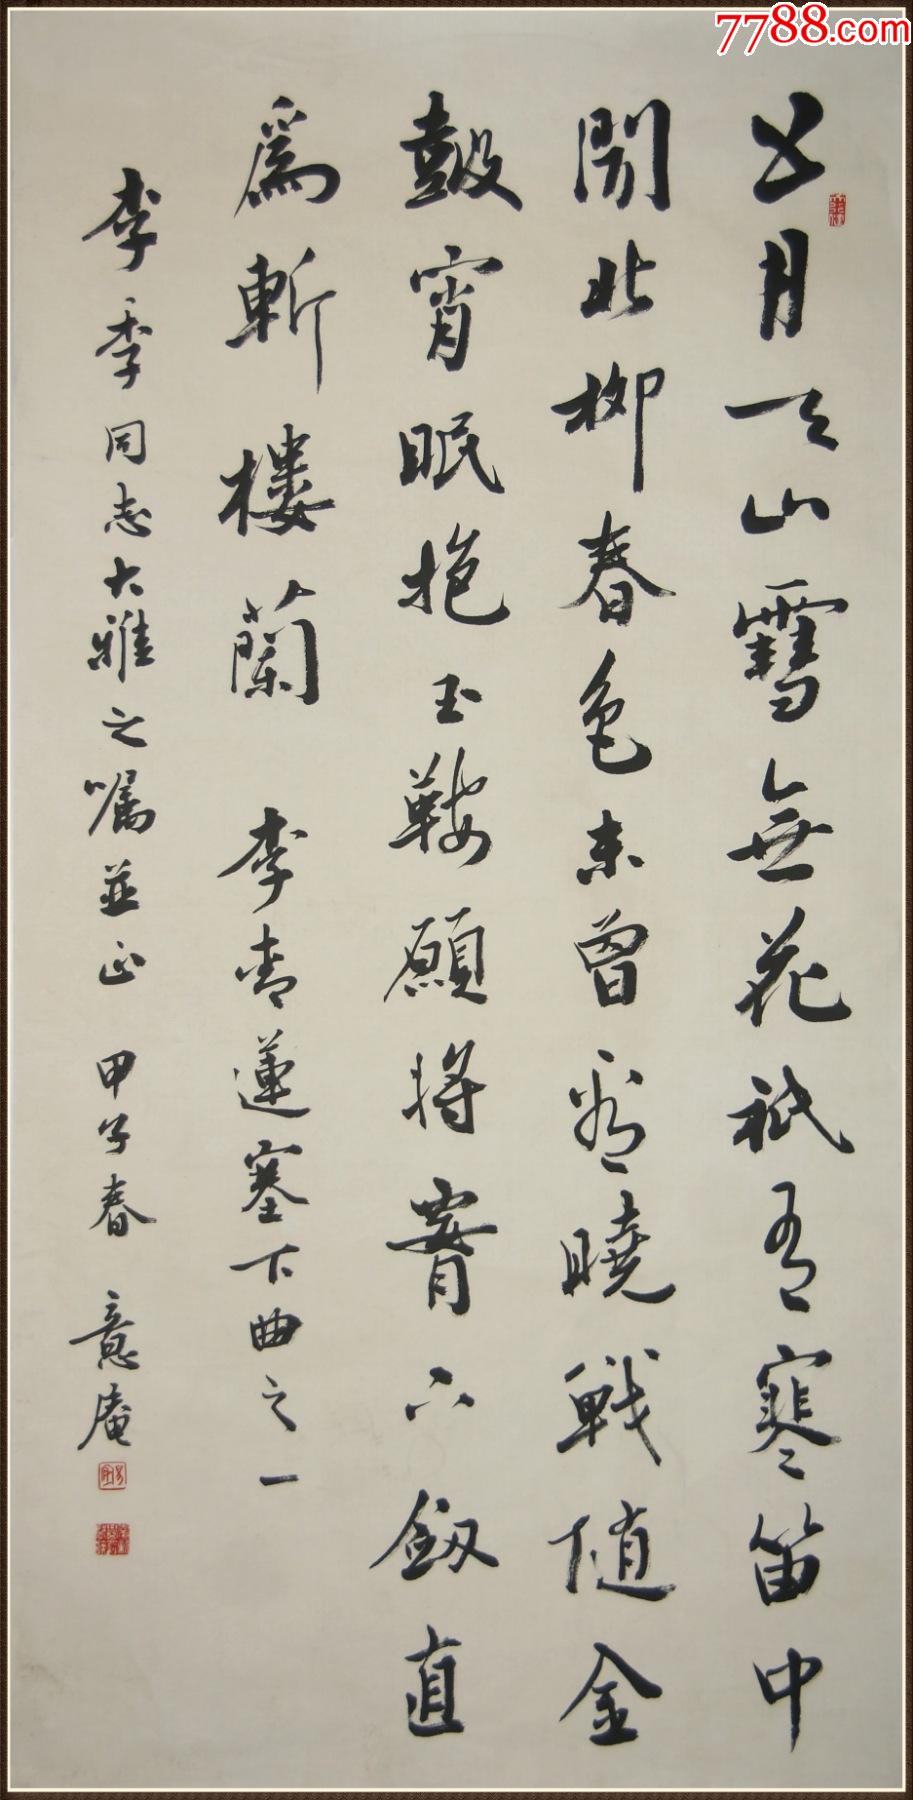 7788.com
五月天山雪無花祇有寒笛中
聞折柳春色未曾看曉戰随金
鼓宵眠抱玉鞍願將腰下釼直
爲斬樓蘭 李青蓮塞下曲之一
李季同志大雅之嘱並正 甲子春 意庵